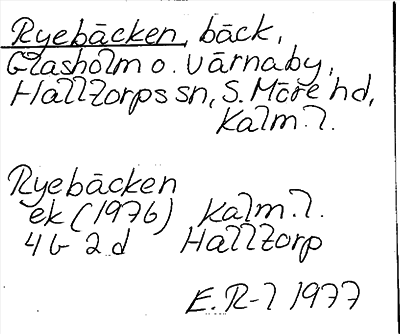 Ryebäcken, bäck,
Glasholm o. Värnaby,
Halltorps sn, S. Möre hd,
Kalm. l.
Ryebäcken
ek (1976) Kalm. l.
4 G 2 d Halltorp
E. R-l 1977